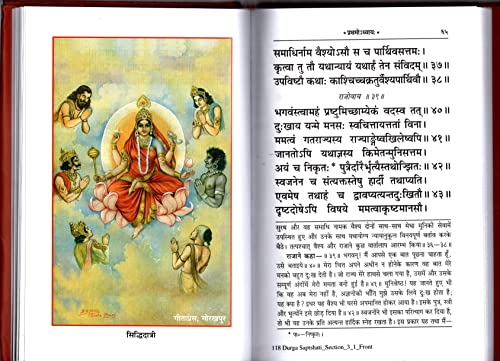 गीताप्रेस, गोरखपुर
सिद्धिदात्री
* प्रथमोऽध्यायः *
६५
समाधिर्नाम वैश्योऽसौ स च पार्थिवसत्तमः।
कृत्वा तु तौ यथान्यायं यथार्हं तेन संविदम्॥ ३७॥
उपविष्टौ कथाः काश्चिच्चक्रतुर्वैश्यपार्थिवौ॥ ३८॥
राजोवाच॥ ३९॥
भगवंस्त्वामहं प्रष्टुमिच्छाम्येकं वदस्व तत्॥ ४०॥
दुःखाय यन्मे मनसः स्वचित्तायत्ततां विना।
ममत्वं गतराज्यस्य राज्याङ्गेष्वखिलेष्वपि॥ ४१॥
जानतोऽपि यथाज्ञस्य किमेतन्मुनिसत्तम।
अयं च निकृतः* पुत्रैर्दारैर्भृत्यैस्तथोज्झितः॥ ४२॥
स्वजनेन च संत्यक्तस्तेषु हार्दी तथाप्यति।
एवमेष तथाहं च द्वावप्यत्यन्तदुःखितौ॥ ४३॥
दृष्टदोषेऽपि विषये ममत्वाकृष्टमानसौ।
सुरथ और वह समाधि नामक वैश्य दोनों साथ-साथ मेधा मुनिकी सेवामें
उपस्थित हुए और उनके साथ यथायोग्य न्यायानुकूल विनयपूर्ण बर्ताव करके
बैठे। तत्पश्चात् वैश्य और राजाने कुछ वार्तालाप आरम्भ किया॥ ३६-३८॥
राजाने कहा—॥ ३९॥ भगवन्! मैं आपसे एक बात पूछना चाहता हूँ,
उसे बताइये॥ ४०॥ मेरा चित्त अपने अधीन न होनेके कारण वह बात मेरे
मनको बहुत दुःख देती है। जो राज्य मेरे हाथसे चला गया है, उसमें और उसके
सम्पूर्ण अंगोंमें मेरी ममता बनी हुई है॥ ४१॥ मुनिश्रेष्ठ! यह जानते हुए भी
कि वह अब मेरा नहीं है, अज्ञानीकी भाँति मुझे उसके लिये दुःख होता है; यह
क्या है? इधर यह वैश्य भी घरसे अपमानित होकर आया है। इसके पुत्र, स्त्री
और भृत्योंने इसे छोड़ दिया है॥ ४२॥ स्वजनोंने भी इसका परित्याग कर दिया है,
तो भी यह उनके प्रति अत्यन्त हार्दिक स्नेह रखता है। इस प्रकार यह तथा मैं—
* पा०—निष्कृतः।
118 Durga Sapshati_Section_3_1_Front